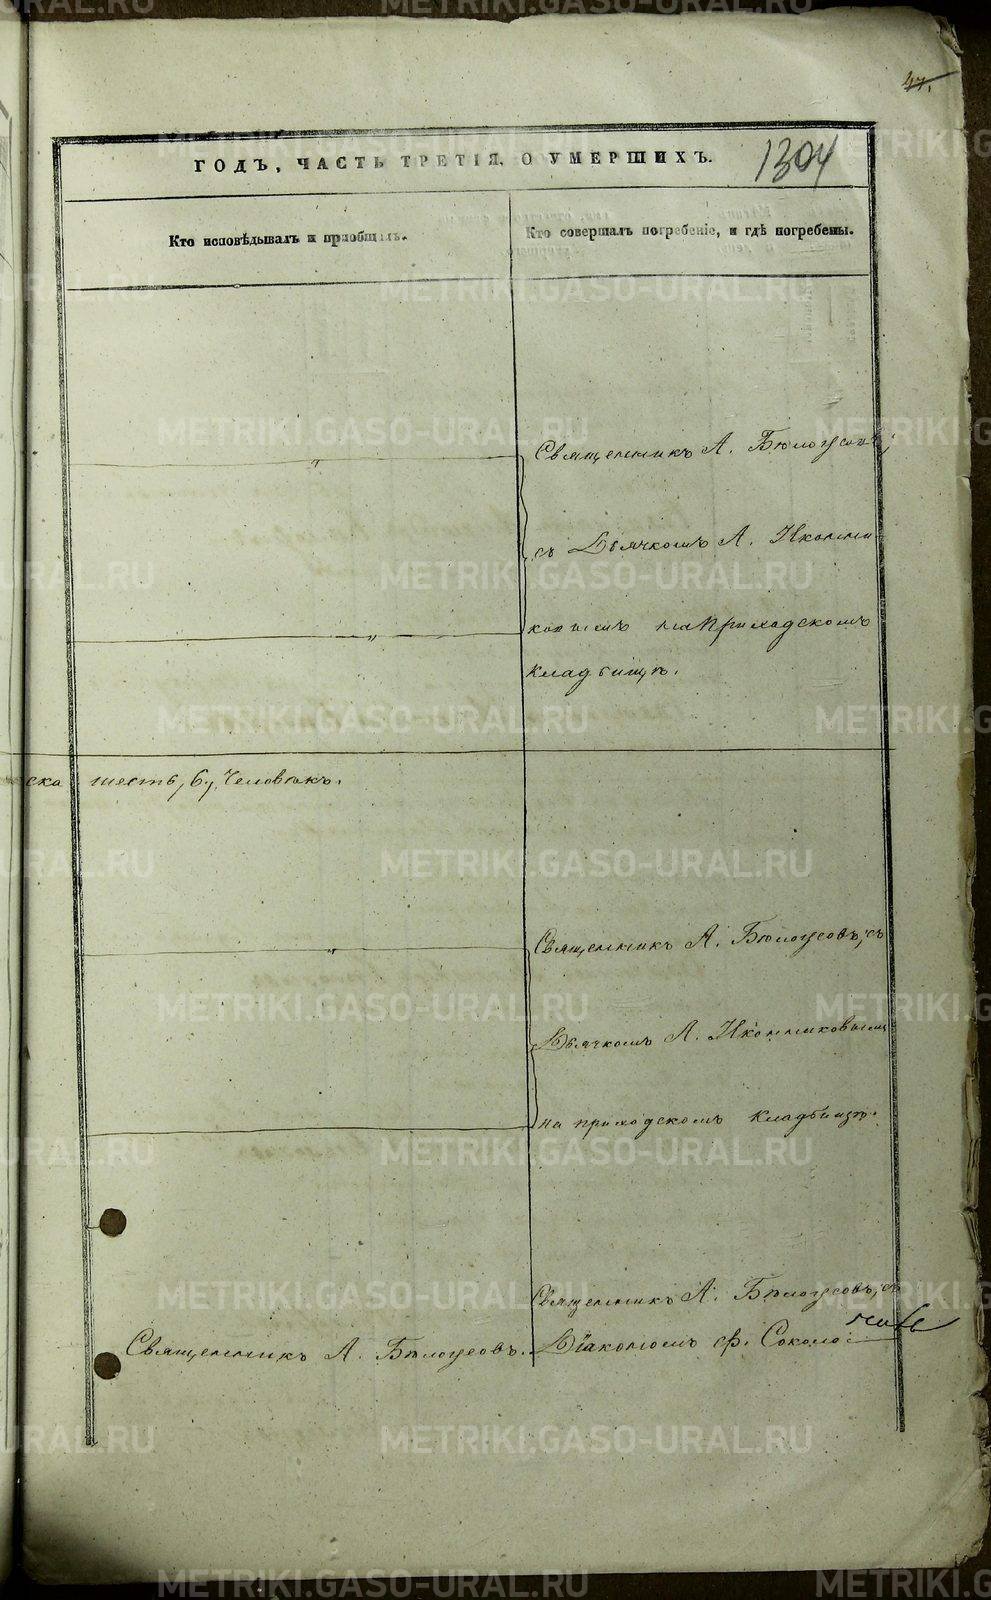 47.
ГОДЪ, ЧАСТЬ ТРЕТІЯ, О УМЕРШИХЪ.
1304
Кто исповѣдывалъ и пріобщалъ.
Кто совершалъ погребеніе, и гдѣ погребены.
Священникъ А. Бѣлоусовъ;
съ Дьячкомъ А. Иконни
ковымъ на приходскомъ
кладбищѣ.
ска шесть, 6, Человѣкъ.
Священникъ А. Бѣлоусовъ, съ
Дьячкомъ А. Иконниковымъ
на приходскомъ кладбищѣ.
Священникъ А. Бѣлоусовъ, съ
Священникъ А. Бѣлоусовъ.
Діакономъ Ф. Соколо
METRIKI.GASO-URAL.RU